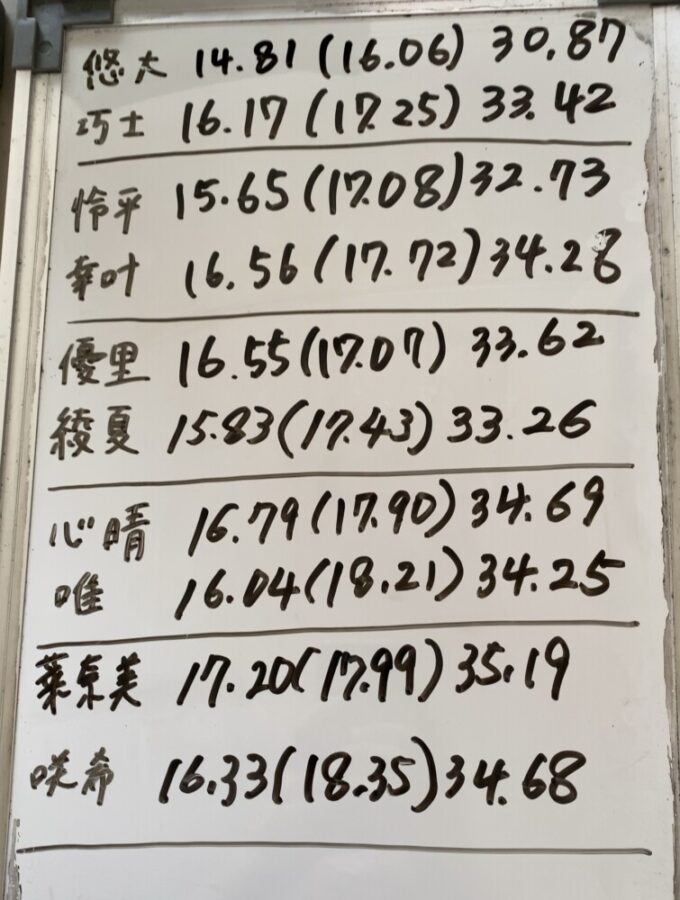 悠大 14.81 (16.06) 30.87
巧士 16.17 (17.25) 33.42
怜平 15.65 (17.08) 32.73
幸叶 16.56 (17.72) 34.28
優里 16.55 (17.07) 33.62
綾夏 15.83 (17.43) 33.26
心晴 16.79 (17.90) 34.69
唯 16.04 (18.21) 34.25
葉京美 17.20 (17.99) 35.19
咲希 16.33 (18.35) 34.68